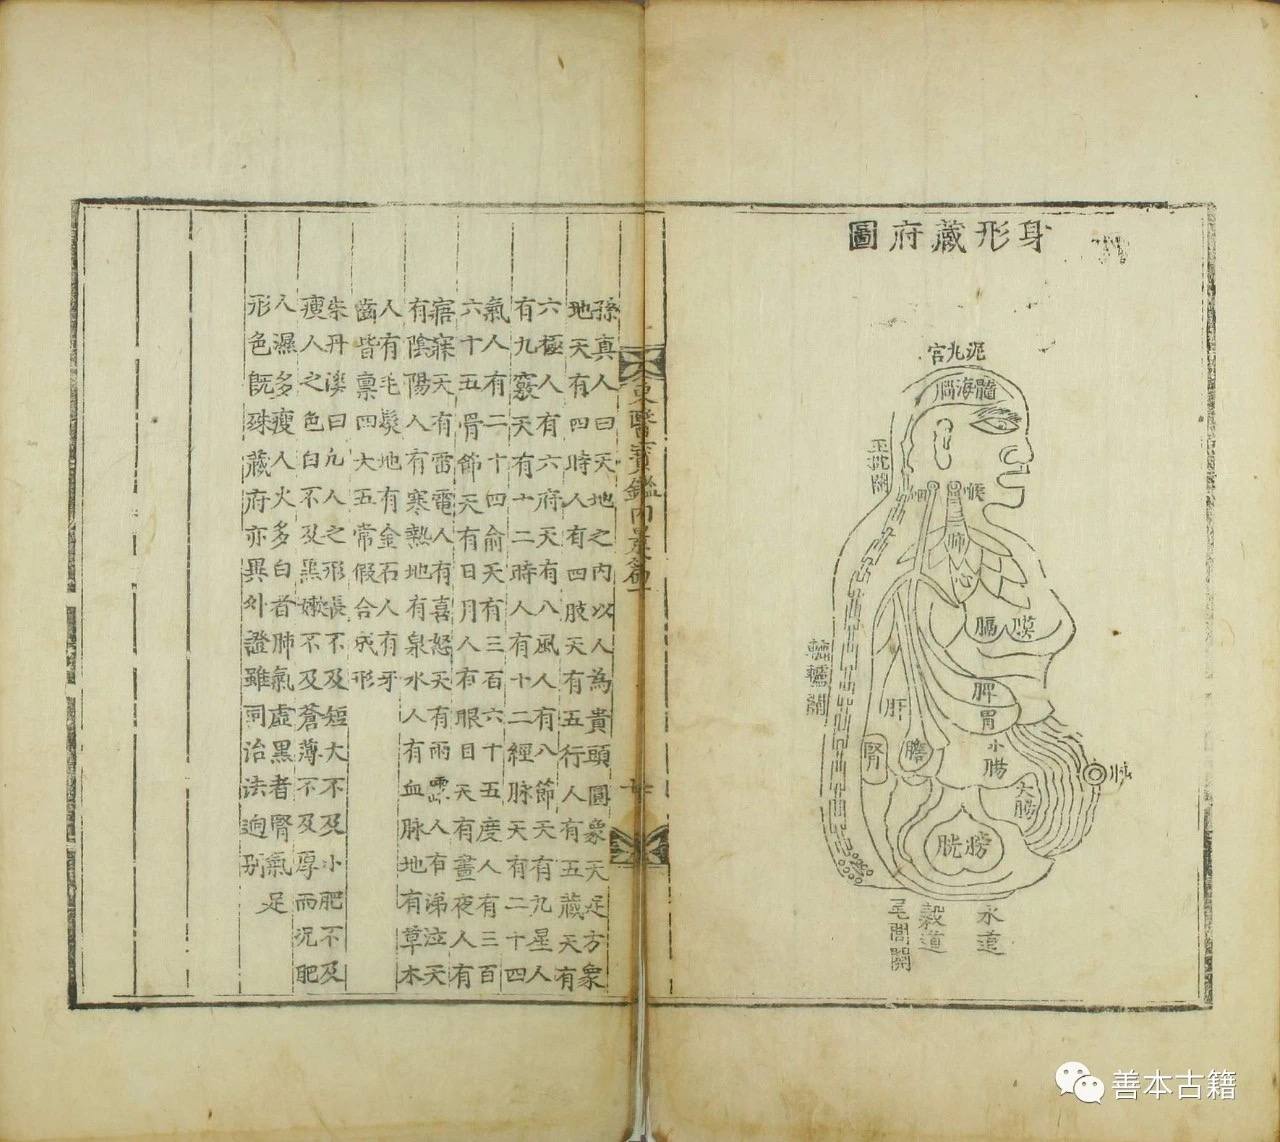 身形藏府圖
泥丸宮
髓海腦
玉枕關
咽
喉
肺
心
膈膜
轆轤關
脾
胃
肝
膽
腎
小腸
大腸
臍
膀胱
水道
穀道
尾閭關
東醫寶鑑內景篇一
孫真人曰天地之內以人為貴頭圓象天足方象
地天有四時人有四肢天有五行人有五藏天有
六極人有六府天有八風人有八節天有九星人
有九竅天有十二時人有十二經脉天有二十四
氣人有二十四俞天有三百六十五度人有三百
六十五骨節天有日月人有眼目天有晝夜人有
寤寐天有雷電人有喜怒天有雨露人有涕泣天
有陰陽人有寒熱地有泉水人有血脉地有草木
人有毛髮地有金石人有牙
齒皆稟四大五常假合成形
朱丹溪曰凡人之形長不及短大不及小肥不及
瘦人之色白不及黑嫩不及蒼薄不及厚而況肥
人濕多瘦人火多白者肺氣虛黑者腎氣足
形色既殊藏府亦異外證雖同治法逈別
善本古籍